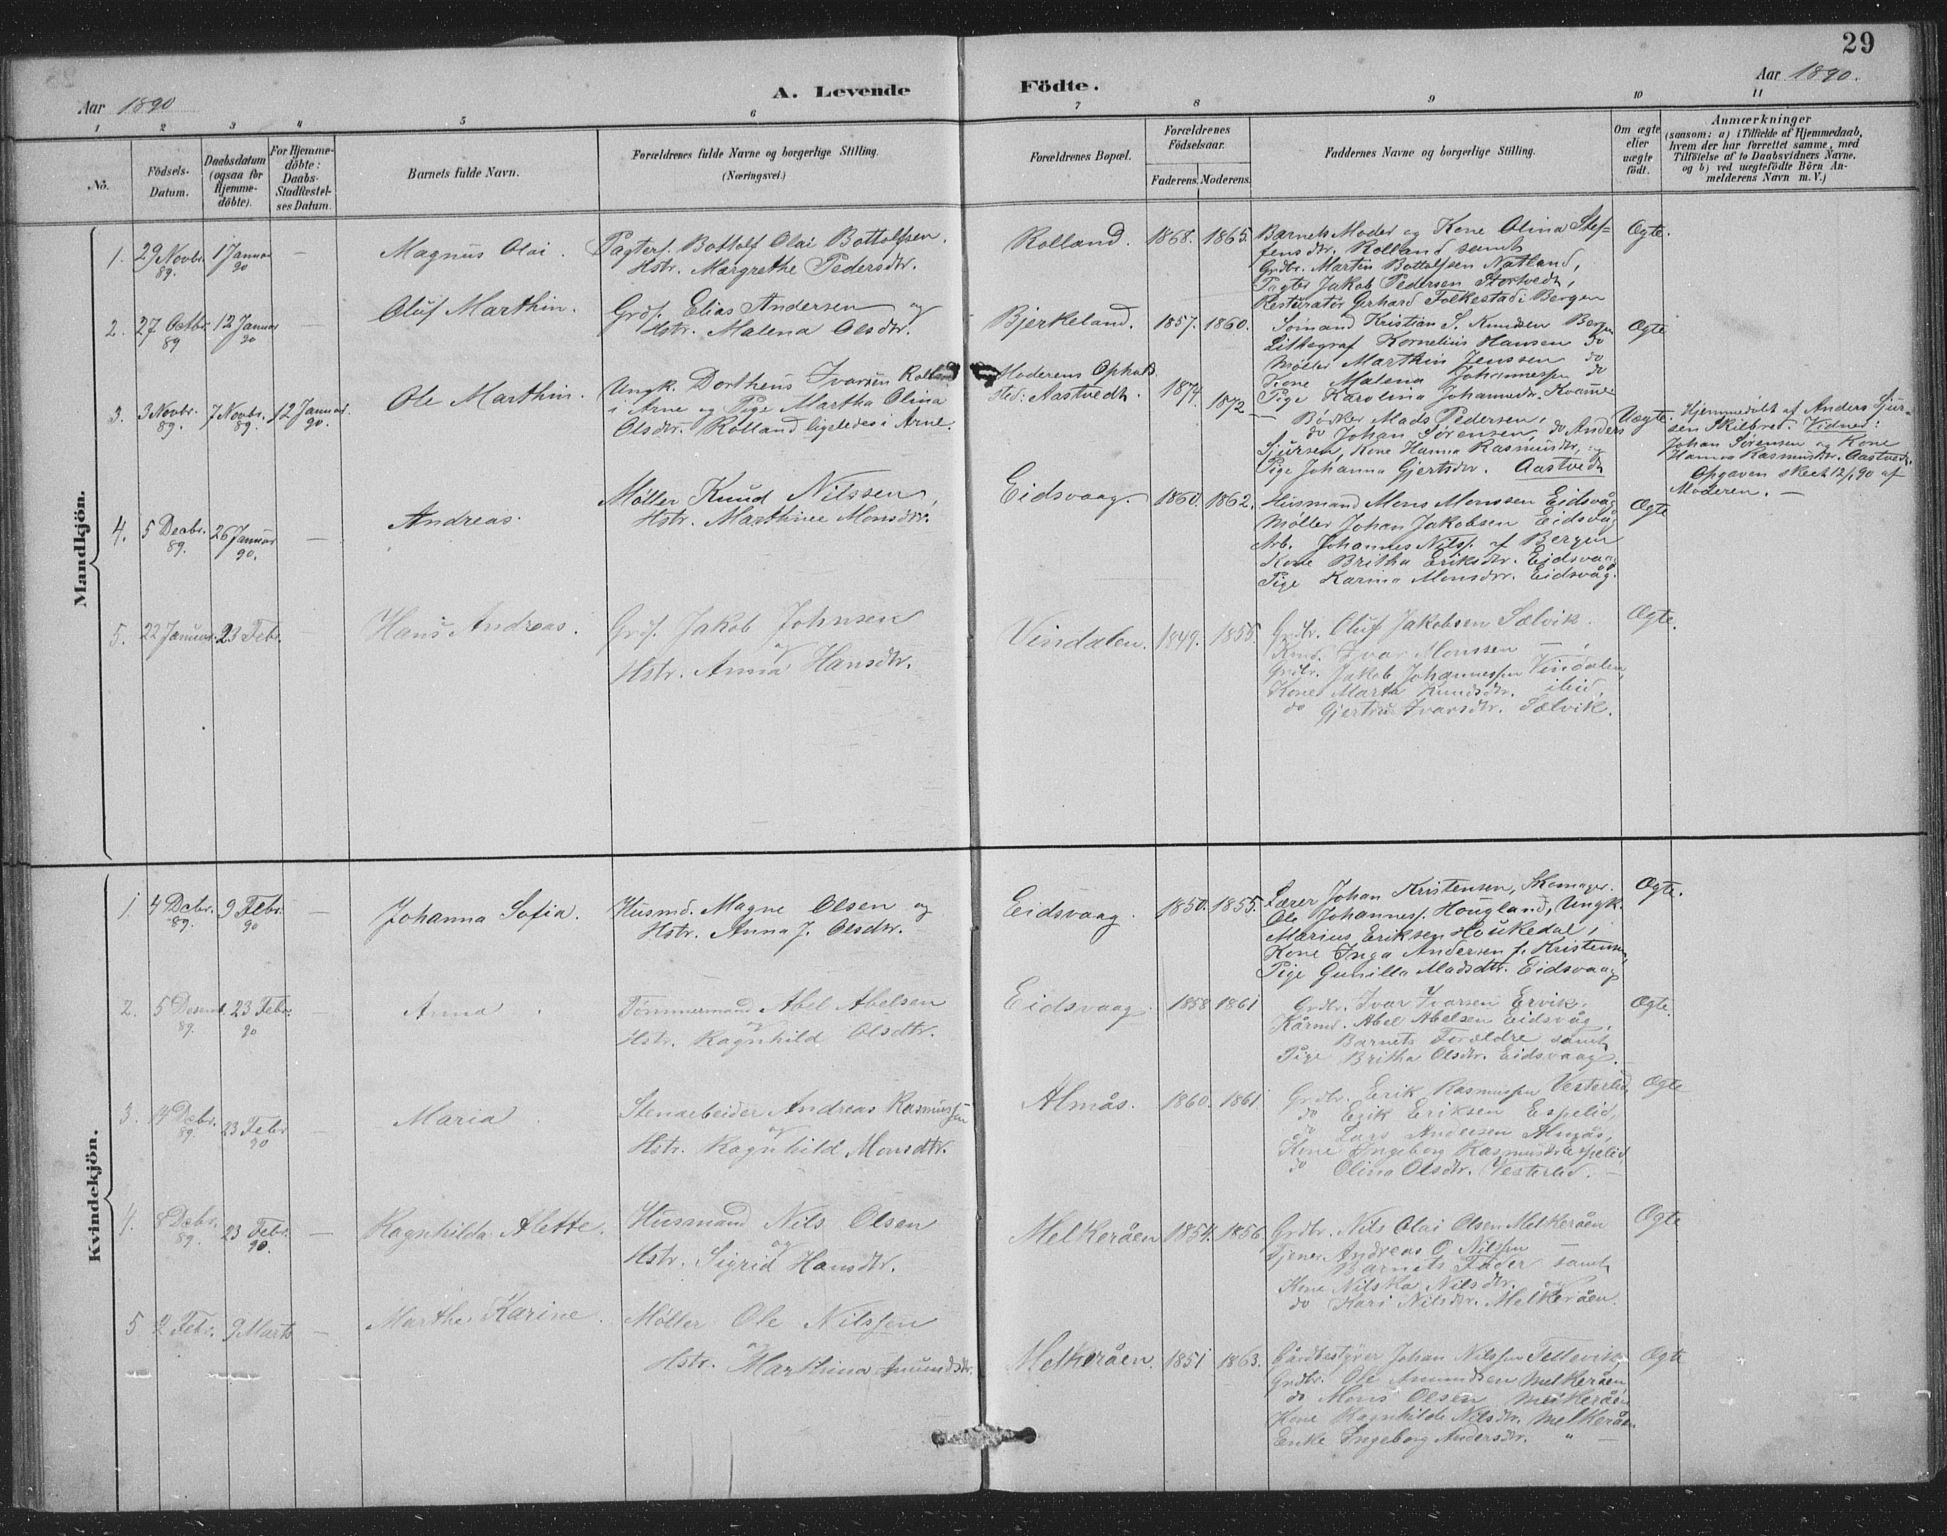 29
Aar 1890
A. Levende
Födte.
Aar 1890.
1 2 3 4 5 6 7 8 9 10 11
No.
Födsels-
Datum.
Daabsdatum
(ogsaa for
Hjemme-
döbte).
For Hjemme-
döbte:
Daabs-
Stadfestel-
ses Datum.
Barnets fulde Navn.
Forældrenes fulde Navne og borgerlige Stilling.
(Næringsvei.)
Forældrenes Bopæl.
Forældrenes
Födselsaar.
Faderens. Moderens.
Faddernes Navne og borgerlige Stilling.
Om ægte
eller
uægte
födt.
Anmærkninger
(saasom: a) i Tilfælde af Hjemmedaab,
hvem der har forrettet samme, med
Tilföielse af to Daabsvidners Navne,
og b) ved uægtefödte Börn An-
melderens Navn m. V.)
Mandkjön.
1. 29 Novbr. 89. 1 Januar 90 — Magnus Olai.
Pagter. Bottolf Olai Bottolfsen.
Hstr. Margrethe Pedersdtr.
Rolland. 1868. 1865.
Barnets Moder og Kone Olina Stef-
fensdtr. Rolland samt
Grdbr. Martin Bottolfsen Natland,
Pagter Jakob Pedersen Stortvedt,
Restauratør Gerhard Folkestad i Bergen
Ægte.
2. 27 Octbr. 89 12 Januar 90 — Oluf Marthin.
Grdf. Elias Andersen og
Hstr. Malena Olsdtr.
Bjerkeland. 1857. 1860.
Sømand Kristian S. Knudsen Bergen
Lithograf Kornelius Hansen do
Møller Marthin Jenssen do
Kone Malena Johannessen do
Pige Karolina Johannesdr. Kvame
Ægte
3. 3 Novbr. 89. 7 Novbr. 89. 12 Januar. 90. Ole Marthin.
Ungk. Dortheus Ivarsen Rolland
i Arne og Pige Martha Olina
Olsdtr. Rolland ligeledes i Arne.
Moderens Opholds-
sted: Aastvedt. 1874. 1872
— Bødker Mads Pedersen,
do Johan Sørensen, do Anders
Sjursen, Kone Hanna Rasmusdtr, og
Pige Johanna Gjertsdtr. Aastvedt
Uægte.
Hjemmedøbt af Anders Sjur-
sen Skilbred. Vidner:
Johan Sørensen og Kone
Hanna Rasmusdtr. Aastvedt.
Opgaven skeet 12/1 90 af
Moderen. —
4. 5 Decbr. 89. 26 Januar 90. — Andreas.
Møller Knud Nilssen,
Hstr. Marthinee Monsdtr.
Eidsvaag. 1860. 1862.
Husmand Mons Monssen Eidsvåg
Møller Johan Jakobsen Eidsvåg
Arb. Johannes Nilss. af Bergen
Kone Britha Eriksdtr. Eidsvaag
Pige Karina Monsdtr. Eidsvåg.
Ægte
5. 22 Januar. 23 Febr. — Hans Andreas.
Grdf. Jakob Johnsen
og
Hstr. Anna Hansdtr.
Vindalen. 1849. 1855
Grdbr. Oluf Jakobsen Sælvik.
Ivar Monssen —,
Grdbr. Jakob Johannessen Vindalen,
Kone Marta Knudsdtr. ibid,
do Gjertrud Ivarsdtr. Sælvik.
Ægte.
Kvindekjön.
1. 4 Decbr. 89. 9 Febr. 90 — Johanna Sofia.
Husmd. Magne Olsen og
Hstr. Anna J. Olsdtr.
Eidsvaag. 1850. 1855.
Lærer Johan Kristensen, Skomager.
Ole Johanness. Hougland, Ungk.
Marius Eriksen Houkedal,
Kone Inga Andersen f. Kristensen,
Pige Gunilla Madsdtr. Eidsvaag
Ægte.
2. 5 Desemb. 89. 23 Febr. 90 — Anna.
Tømmermand Abel Abelsen
og
Hstr. Ragnhild Olsdtr.
Eidsvaag. 1858 1861
Grdbr. Ivar Ivarsen Ervik.
Kårmd. Abel Abelsen Eidsvåg,
Barnets Forældre samt
Pige Britha Olsdtr. Eidsvaag.
Ægte.
3. 14 Decbr. 89. 23 Febr 90 — Maria.
Stenarbeider Andreas Rasmussen
og
Hstr. Ragnhild Monsdtr.
Almås. 1860. 1861
Grdbr. Erik Rasmussen Vesterlid,
do Erik Eriksen Espelid,
do Lars Andersen Almås,
Kone Ingeborg Rasmusdtr Espelid,
do Olina Olsdtr. Vesterlid. —
Ægte
4. 8 Decbr. 89. 23 Febr. 90. — Ragnhilda Alette.
Husmand Nils Olsen
og
Hstr. Sigrid Hansdtr.
Melkeråen 1854. 1856.
Grdbr. Nils Olai Olsen Melkeråen
Tjener. Andreas O. Nilssen —
Barnets Fader samt
Kone Nilska Nilsdtr. og
do Kari Nilsdtr. Melkeråen.
Ægte
5 2 Febr. 9 Marts — Marthe Karine.
Møller Ole Nilssen
og
Hstr. Marthina Amundsdtr.
Melkeråen. 1851 1863.
Gårdbestyrer Johan Nilssen Tellevik,
Grdbr. Ole Amundsen Melkeråen,
do Mons Olsen Melkeråen
Kone Ragnhilde Nilsdtr. Melkeråen
Enke Ingeborg Andersdtr. " —
Ægte